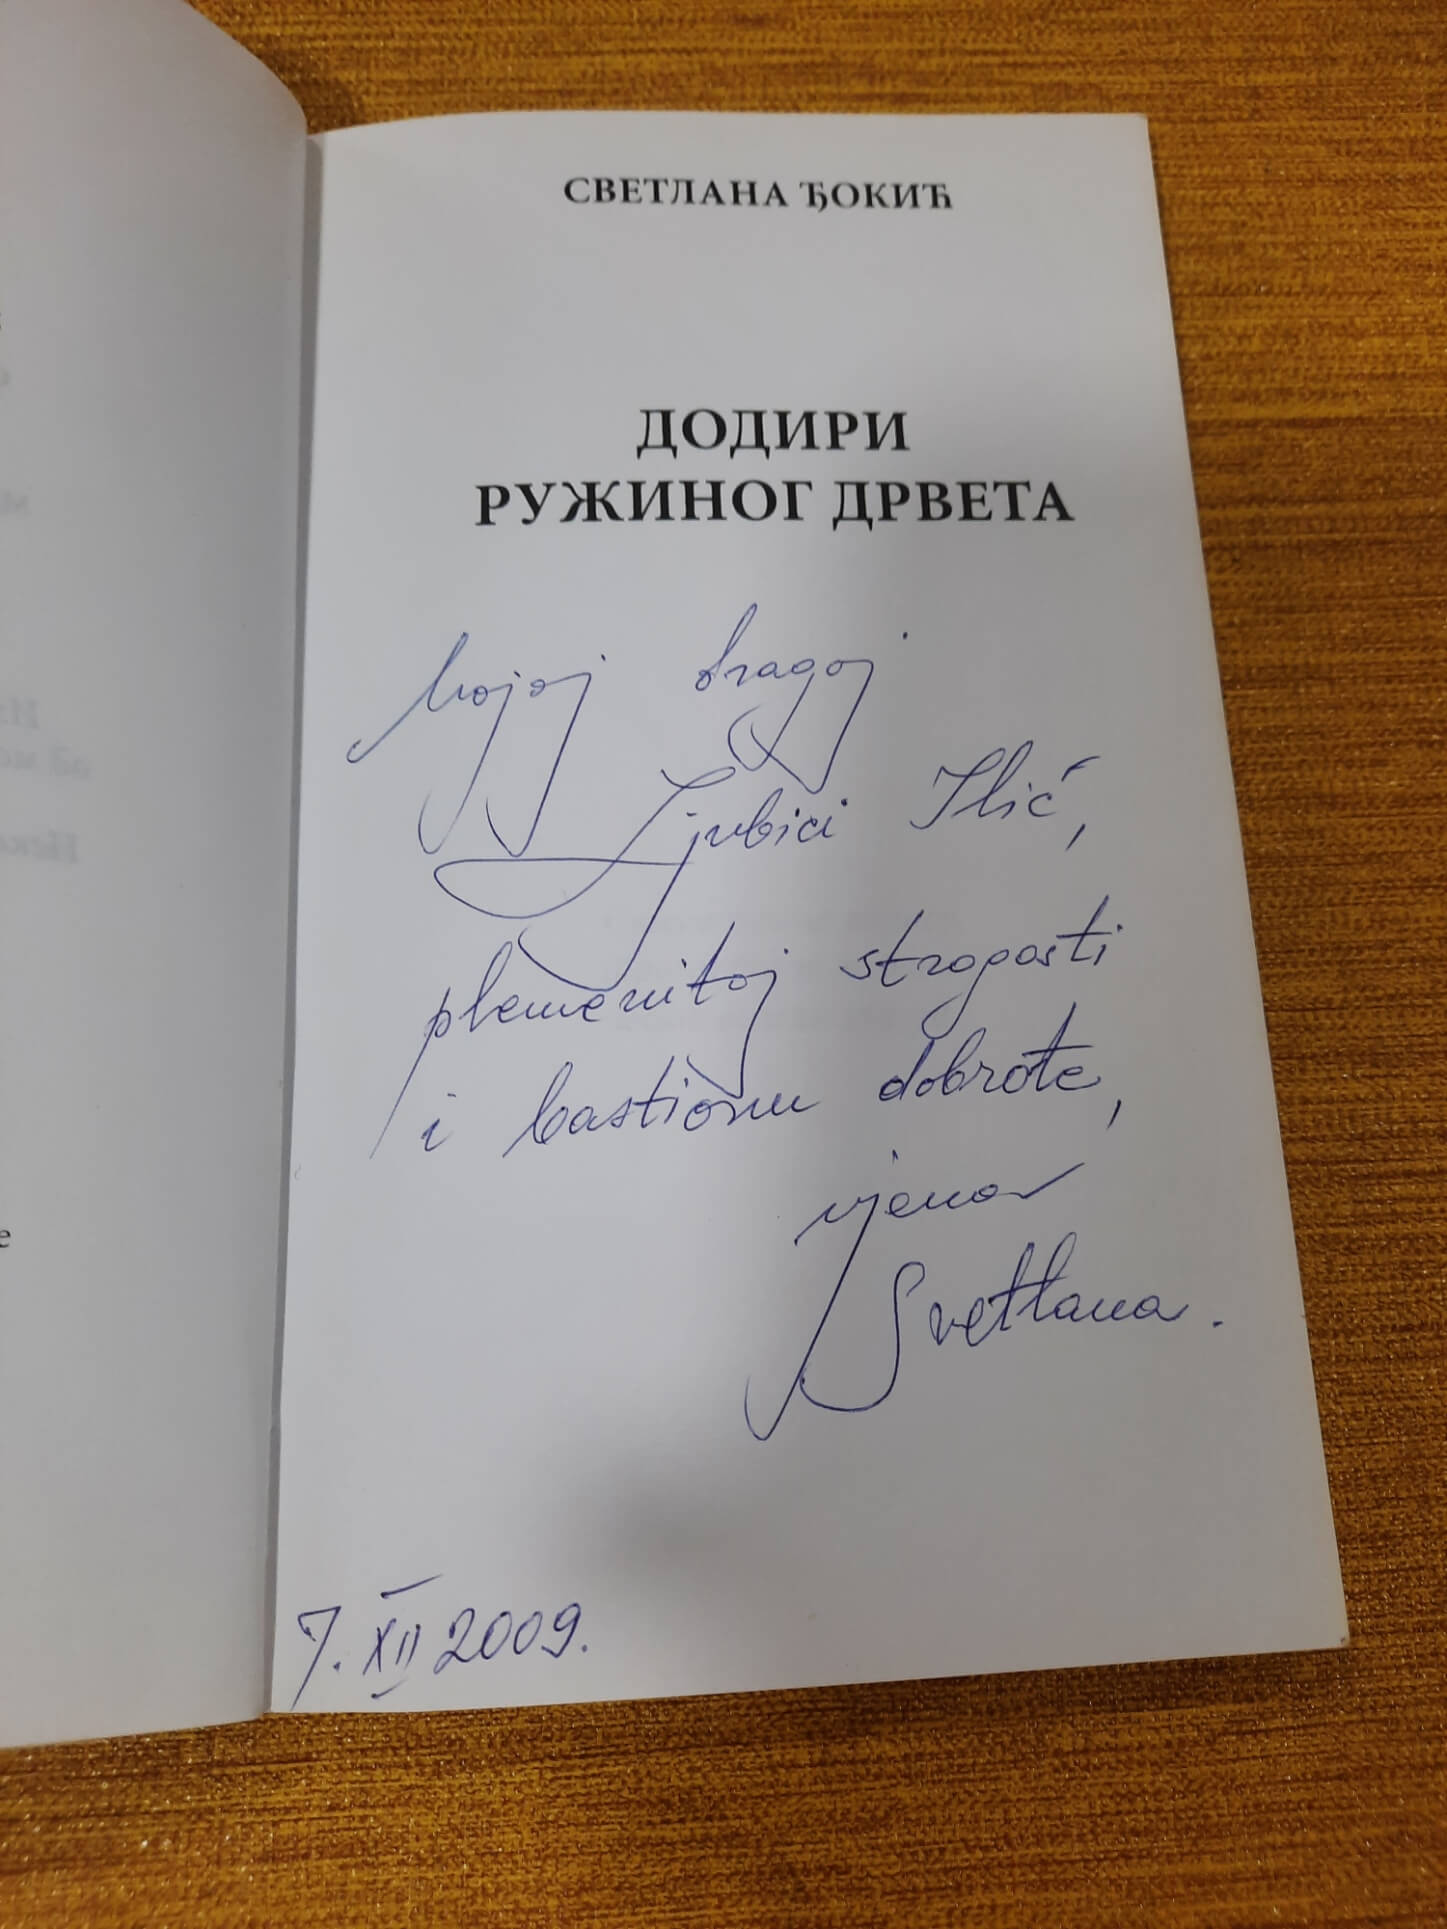 СВЕТЛАНА ЂОКИЋ
ДОДИРИ
РУЖИНОГ ДРВЕТА
Mojoj dragoj
Ljubici Ilić,
plemenitoj strogosti
i bastionu dobrote,
njena
Svetlana.
7. XII 2009.